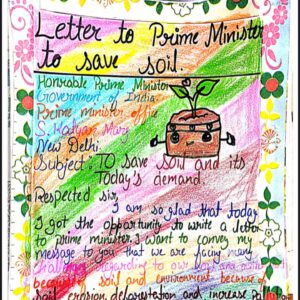 Letter to Prime Minister
to save soil
Honorable Prime Minister
Government of India
Prime minister office
S. Kadyan Marg
New Delhi
Subject: TO save soil and its
Today's demand
Respected sir,
I am so glad that today
I got the opportunity to write a letter
to prime minister. I want to convey my
message to you that we are facing many
challenges regarding to our soil and
because of soil and environment because of
soil erosion, deforestation and increase